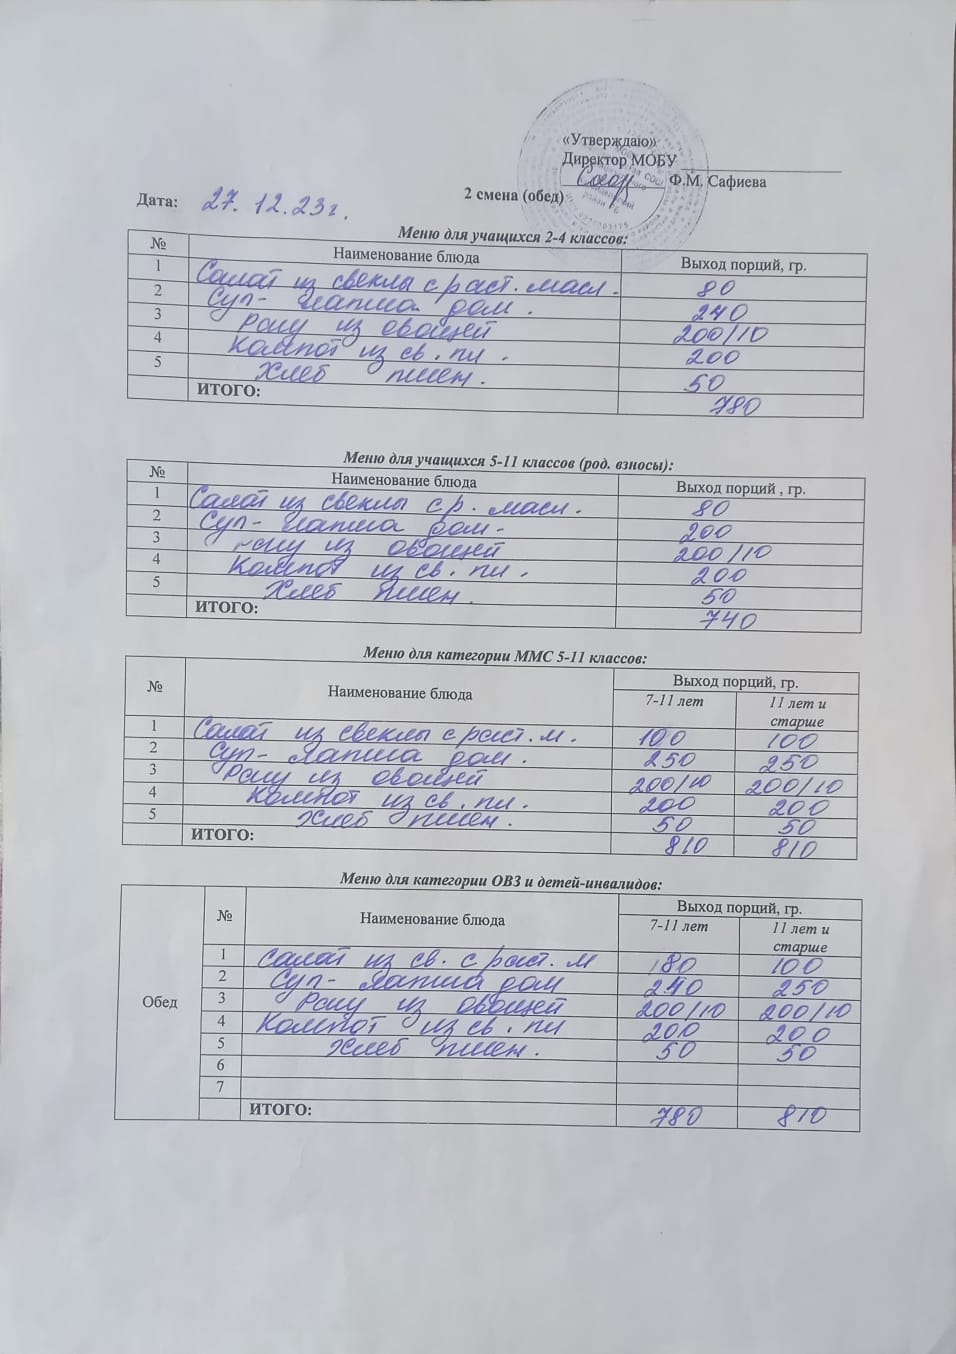 «Утверждаю»
Директор МОБУ
Ф.М. Сафиева
2 смена (обед)
Дата: 27.12.23г.
Меню для учащихся 2-4 классов:
№ Наименование блюда Выход порций, гр.
1 Салат из свеклы с раст. масл. 80
2 Суп-лапша дом. 240
3 Рагу из овощей 200/10
4 Компот из св. пл. 200
5 Хлеб пшен. 50
ИТОГО: 780
Меню для учащихся 5-11 классов (род. взносы):
№ Наименование блюда Выход порций , гр.
1 Салат из свеклы с р. масл. 80
2 Суп-лапша дом- 200
3 рагу из овощей 200/10
4 Компот из св. пл. 200
5 Хлеб пшен. 50
ИТОГО: 740
Меню для категории ММС 5-11 классов:
№ Наименование блюда Выход порций, гр.
7-11 лет 11 лет и старше
1 Салат из свеклы с раст. м. 100 100
2 Суп-лапша дом. 250 250
3 Рагу из овощей 200/10 200/10
4 Компот из св. пл. 200 200
5 Хлеб пшен. 50 50
ИТОГО: 810 810
Меню для категории ОВЗ и детей-инвалидов:
Обед № Наименование блюда Выход порций, гр.
7-11 лет 11 лет и старше
1 Салат из св. с раст. м 80 100
2 Суп-лапша дом 240 250
3 Рагу из овощей 200/10 200/10
4 Компот из св. пл 200 200
5 Хлеб пшен. 50 50
6
7
ИТОГО: 780 810